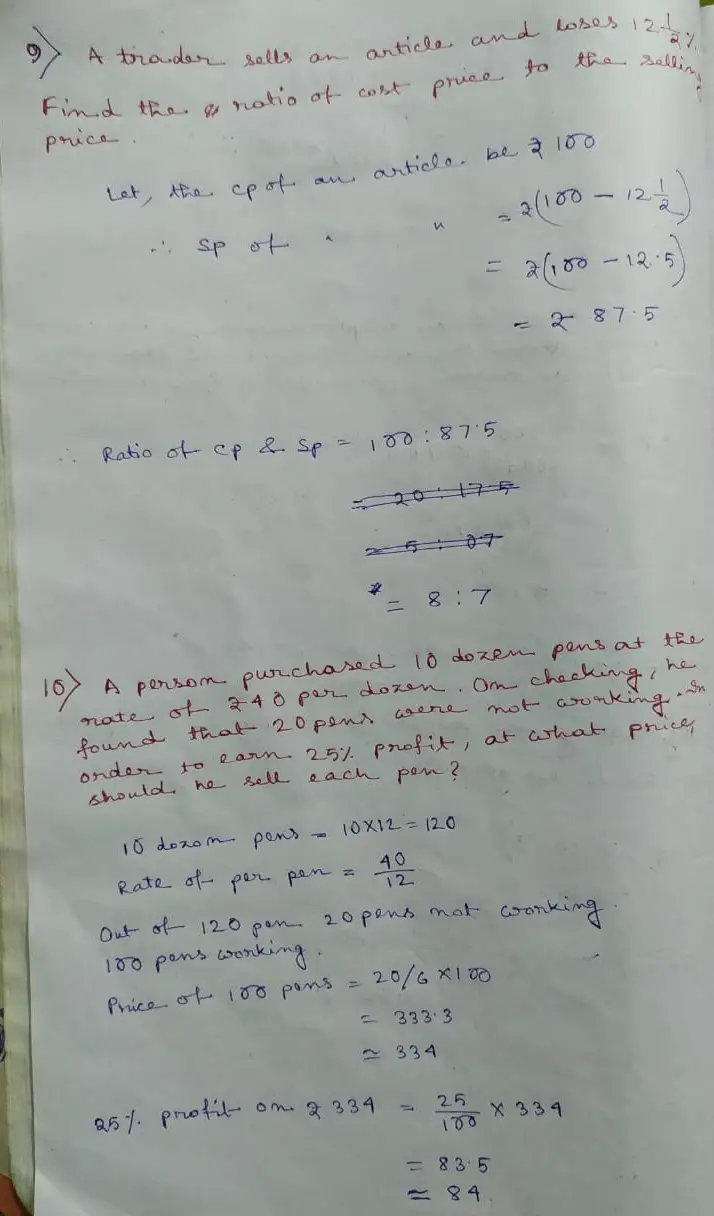 9) A trader sells an article and loses 12 1/2 %.
Find the ratio of cost price to the selling
price.
Let, the cp of an article be ₹ 100
∴ SP of " " = ₹(100 - 12 1/2)
= ₹(100 - 12.5)
= ₹ 87.5
∴ Ratio of CP & SP = 100 : 87.5
= 20 : 17.5
= 8 : 7
10) A person purchased 10 dozen pens at the
rate of ₹40 per dozen. On checking, he
found that 20 pens were not working. In
order to earn 25% profit, at what price,
should he sell each pen?
10 dozen pens = 10X12 = 120
Rate of per pen = 40/12
Out of 120 pen 20 pens not working.
100 pens working.
Price of 100 pens = 20/6 X100
= 333.3
≃ 334
25% profit on ₹ 334 = 25/100 X 334
= 83.5
≃ 84